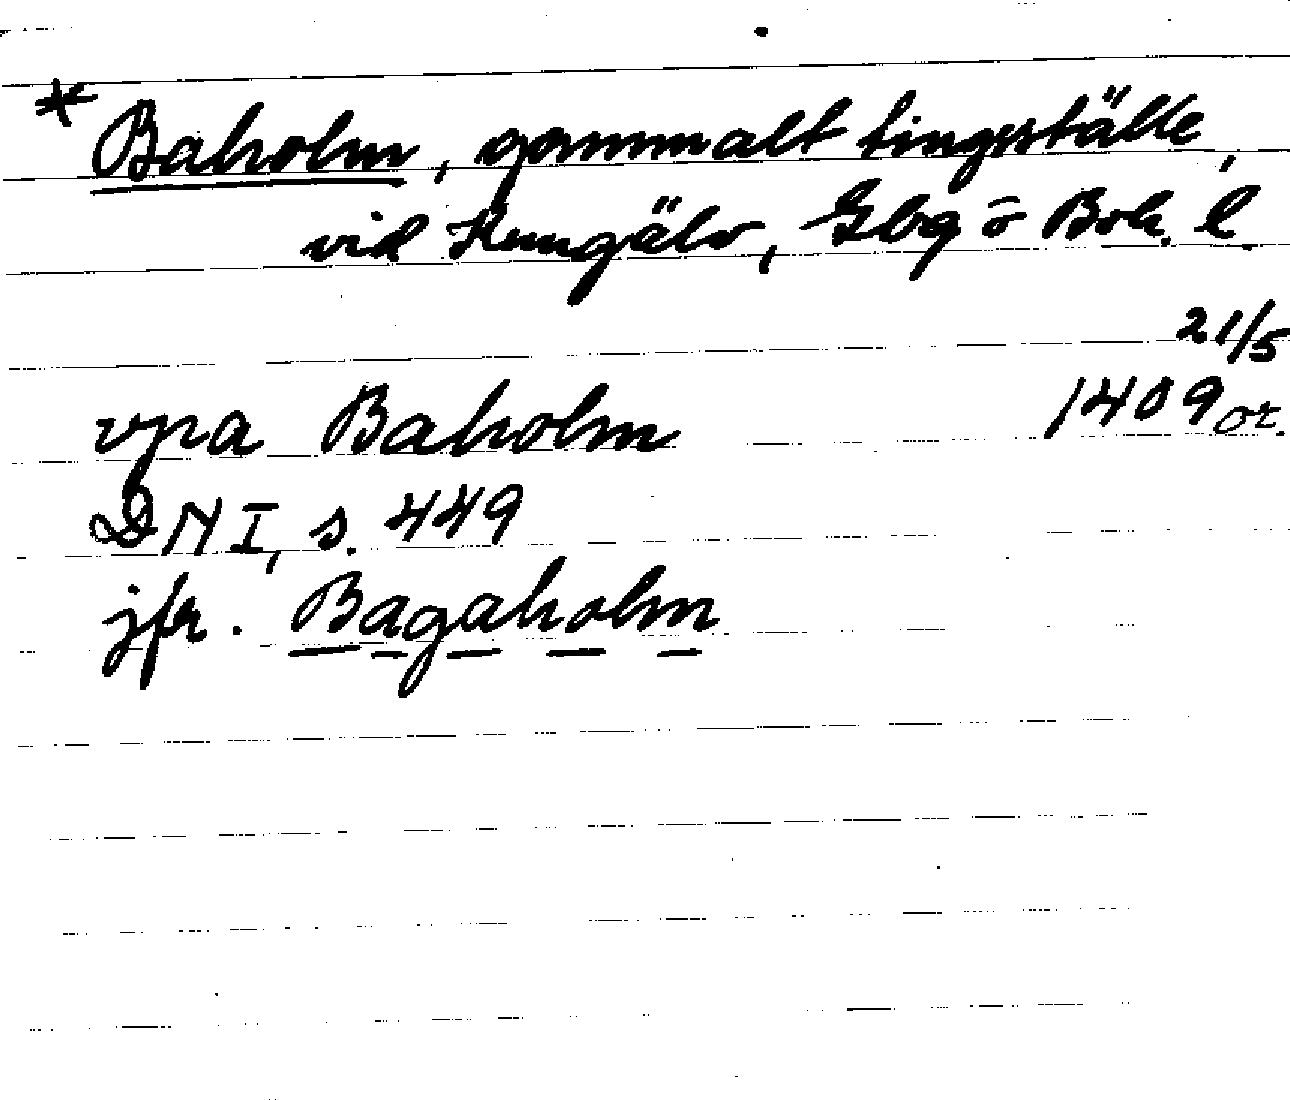 * Baholm, gammalt tingsställe,
vid Kungälv, Gbg o Boh. l.
21/5
vpa Baholm 1409 or.
DN I, s. 449
jfr. Bagaholm